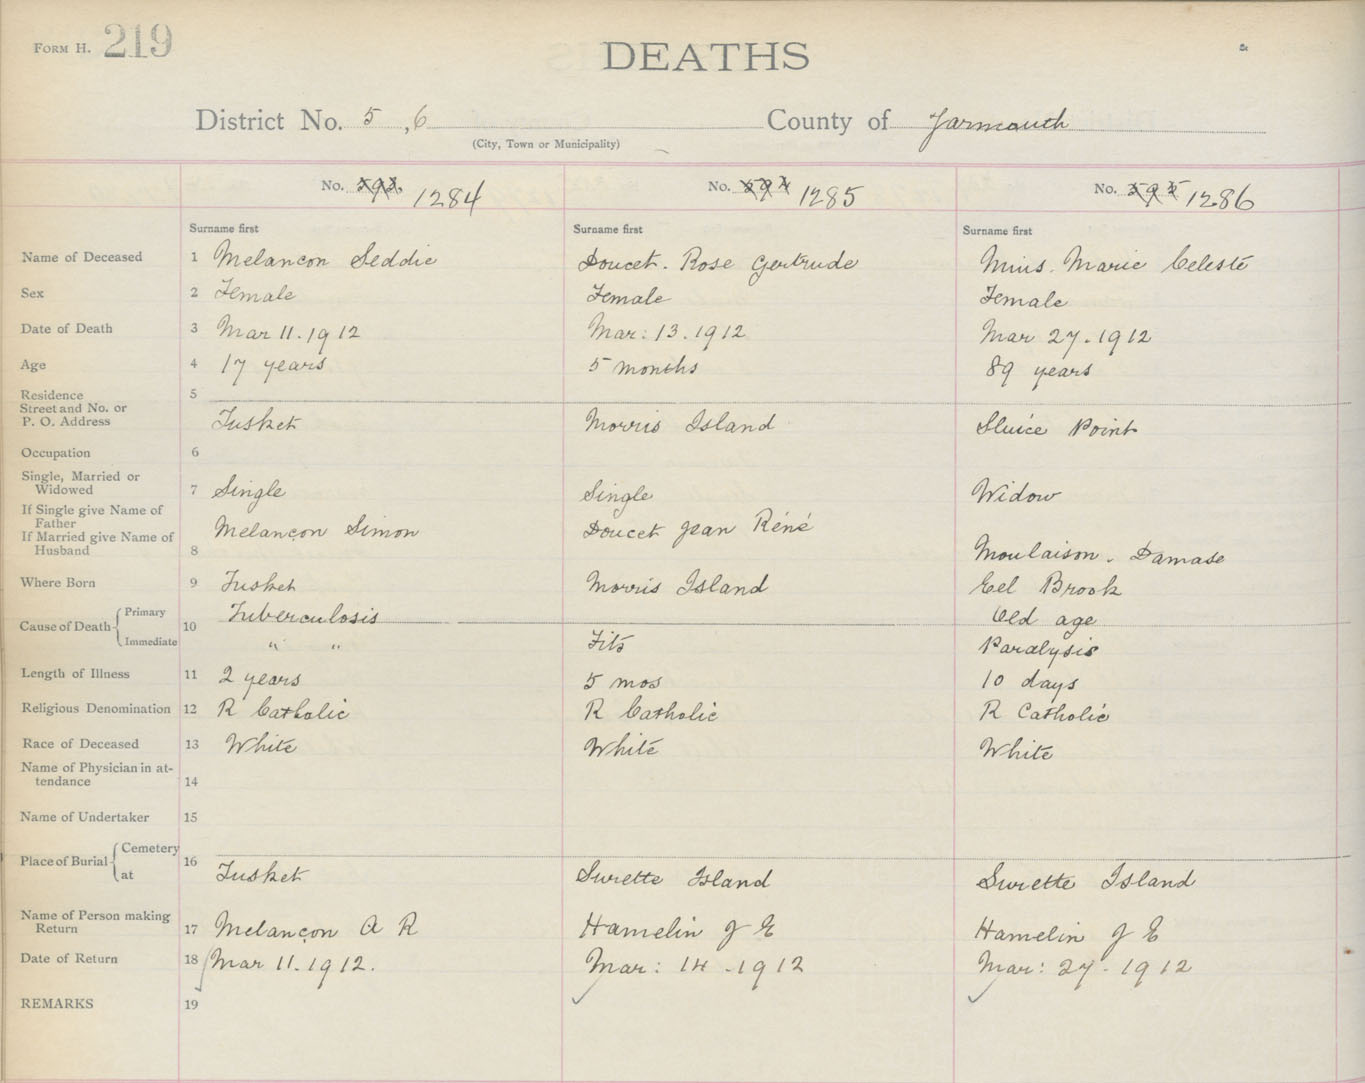 FORM H. 219
DEATHS
District No. 5, 6 County of Yarmouth
(City, Town or Municipality)
No. 593. 1284 No. 594 1285 No. 595 1286
Surname first Surname first Surname first
Name of Deceased 1 Melancon Seddie Doucet. Rose Gertrude Mius. Marie Celeste
Sex 2 Female Female Female
Date of Death 3 Mar 11. 1912 Mar: 13. 1912 Mar 27. 1912
Age 4 17 years 5 months 89 years
Residence 5
Street and No. or
P. O. Address Tusket Morris Island Sluice Point
Occupation 6
Single, Married or
Widowed 7 Single Single Widow
If Single give Name of
Father Melançon Simon Doucet Jean Réné
If Married give Name of
Husband 8 Moulaison. Damase
Where Born 9 Tusket Morris Island Eel Brook
Cause of Death 10 Primary Tuberculosis Old age
Immediate " " Fits Paralysis
Length of Illness 11 2 years 5 mos 10 days
Religious Denomination 12 R Catholic R Catholic R Catholic
Race of Deceased 13 White White White
Name of Physician in at-
tendance 14
Name of Undertaker 15
Place of Burial 16 Cemetery
at Tusket Surette Island Surette Island
Name of Person making
Return 17 Melançon A R Hamelin J E Hamelin J E
Date of Return 18 Mar 11. 1912. Mar: 14 - 1912 Mar: 27 - 1912
REMARKS 19